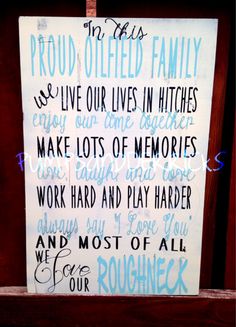 In this
PROUD OILFIELD FAMILY
we LIVE OUR LIVES IN HITCHES
enjoy our time together
MAKE LOTS OF MEMORIES
live, laugh and love
WORK HARD AND PLAY HARDER
always say "I Love You"
AND MOST OF ALL
WE Love OUR ROUGHNECK